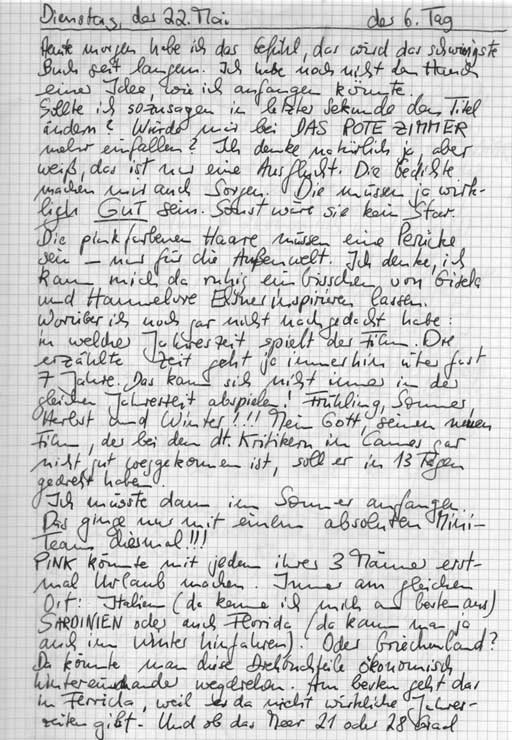 Dienstag, das 22. Mai des 6. Tag
Heute morgen habe ich das Gefühl, das wird das schwierigste
Buch seit langem. Ich habe noch nicht den Hauch
einer Idee, wie ich anfangen könnte.
Sollte ich sozusagen in letzter Sekunde den Titel
ändern? Würde mir bei DAS ROTE ZIMMER
mehr einfallen? Ich denke natürlich ja, aber
weiß, das ist nur eine Ausflucht. Die Gedichte
machen mir auch Sorgen. Die müssen ja wirk-
lich GUT sein. Sonst wäre sie kein Star.
Die pinkfarbenen Haare müssen eine Perücke
sein – nur für die Außenwelt. Ich denke, ich
kann mich da ruhig ein bisschen von Gisela
und Hannelore Elsner inspirieren lassen.
Worüber ich noch gar nicht nachgedacht habe:
in welcher Jahreszeit spielt der Film. Die
erzählte Zeit geht ja immerhin über fast
7 Jahre. Das kann sich nicht immer in der
gleichen Jahreszeit abspielen! Frühling, Sommer,
Herbst und Winter!!! Mein Gott, seinen neuen
Film, der bei den dt. Kritikern in Cannes gar
nicht gut weggekommen ist, soll er in 13 Tagen
gedreht haben.
Ich müsste dann im Sommer anfangen.
Das ginge nur mit einem absoluten Mini-
Team diesmal!!!
PINK könnte mit jedem ihrer 3 Männer erst-
mal Urlaub machen. Immer am gleichen
Ort: Italien (da kenne ich mich am besten aus)
SARDINIEN oder auch Florida (da kann man ja
auch im Winter hinfahren). Oder Griechenland?
Da könnte man diese Drehbuchteile ökonomisch
hintereinander wegdrehen. Am besten geht das
in Florida, weil es da nicht wirkliche Jahres-
zeiten gibt. Und ob das Meer 21 oder 28 Grad